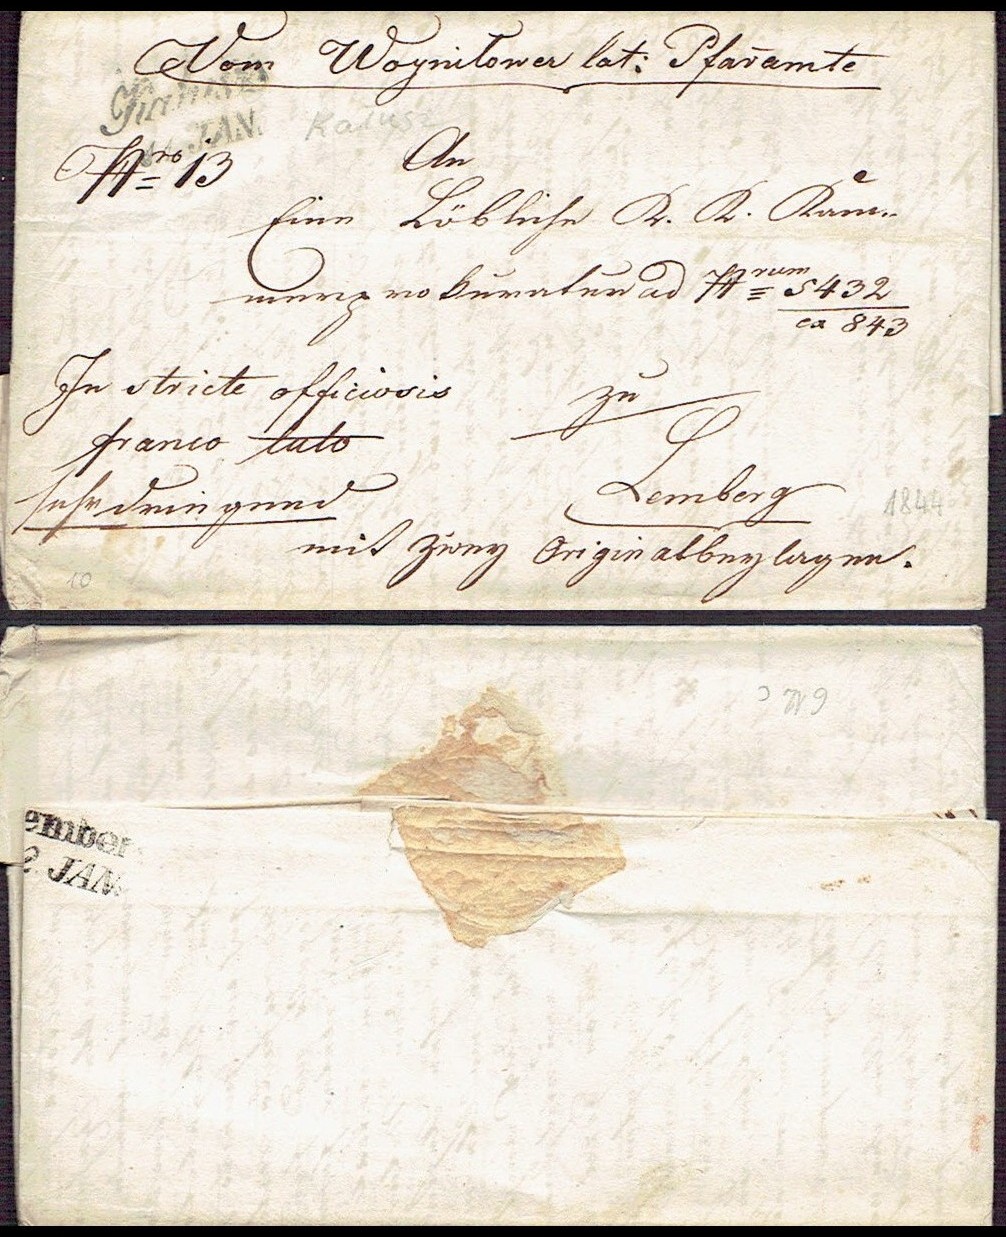 Vom Woynilower lat: Pfaramte
JAN.
Kalusz
Nro 13
An
Eine Löbliche K. K. Kam-
merprokuratur ad Nrum 5432
ex 843
In stricte officiosis
franco tuto
sehr dringend
zu
Lemberg
1844
mit zwey Originalbeylagen.
10
ember
2 JAN.